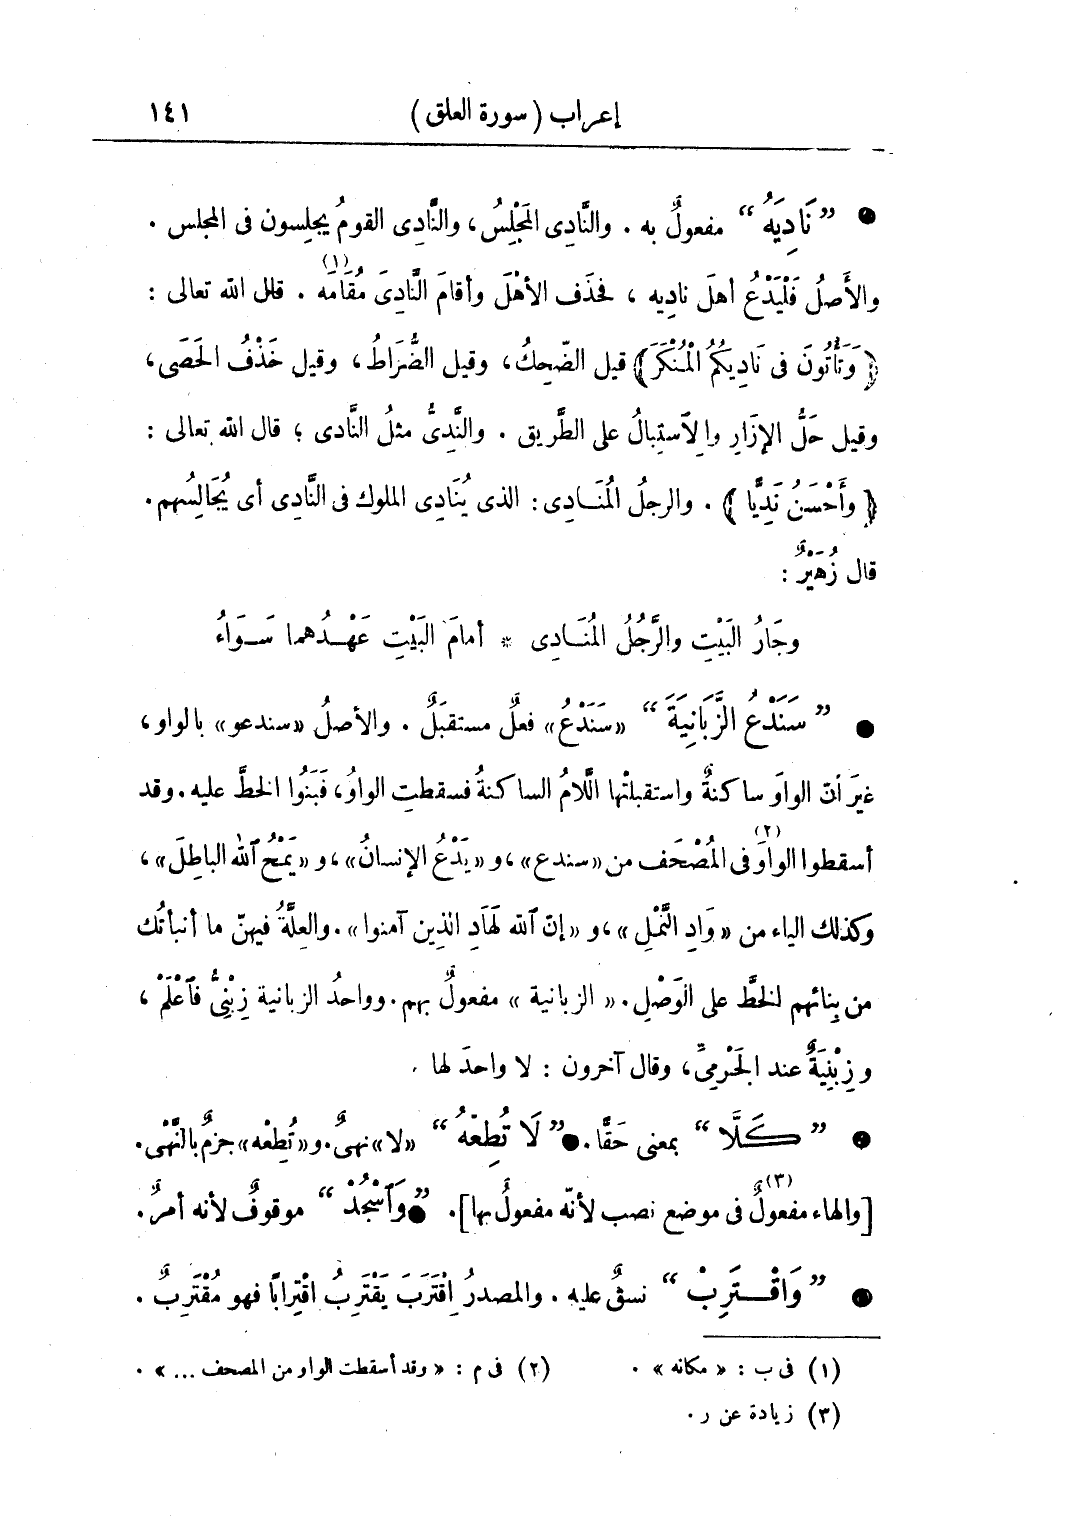 إعراب ( سورة العلق ) ١٤١
● ” نَادِيَهُ “ مفعولٌ به . والنَّادِى المَجْلِسُ ، والنَّادِى القومُ يجلِسون فى المجلس .
والأَصلُ فَلْيَدْعُ أهلَ نادِيه ، فحذَف الأهْلَ وأقامَ النَّادِىَ مُقَامَه (١) . قال الله تعالى :
﴿ وَتَأْتُونَ فى نَادِيكُمُ الْمُنْكَرَ ﴾ قيل الضّحِكُ ، وقيل الضُّرَاطُ ، وقيل خَذْفُ الحَصَى ،
وقيل حَلُّ الإزَارِ والاَستِبالُ على الطَّريق . والنَّدِىُّ مثلُ النَّادى ؛ قال الله تعالى :
﴿ وأَحْسَنُ نَدِيًّا ﴾ . والرجلُ المُنَــادِى : الذى يُنَادِى الملوك فى النَّادِى أى يُجَالِسُهم .
قال زُهَيْرٌ :
وجَارُ البَيْتِ والرَّجُلُ المُنَــادِى * أمامَ البَيْتِ عَهْــدُهما سَــوَاءُ
● ” سَنَدْعُ الزَّبَانِيَةَ “ «سَنَدْعُ» فعلٌ مستقبَلٌ . والأصلُ «سندعو» بالواو ،
غيرَ أنّ الواوَ ساكنةٌ واستقبلتْها الَّلامُ الساكنةُ فسقطتِ الواوُ ، فَبَنَوُا الخطَّ عليه . وقد
أسقطوا الواوَ (٢) فى المُصْحَف من «سندع» ، و «يَدْعُ الإنسانُ» ، و «يَمْحُ ٱللهُ الباطِلَ» ،
وكذلك الياء من «وَادِ النَّمْلِ» ، و «إنّ ٱلله لَهَادِ الذين آمنوا» . والعِلَّةُ فيهنّ ما أنبأتُك
من بِنائهم الخطَّ على الوَصْلِ . « الزبانية » مفعولٌ بهم . وواحدُ الزبانية زِبْنِىٌّ فٱعْلَمْ ،
و زِبْنِيَةٌ عند الجَرْمِىِّ ، وقال آخرون : لا واحدَ لها .
● ” كَــلَّا “ بمعنى حَقًّا . ● ” لَا تُطِعْهُ “ «لا» نهىٌ . و «تُطِعْه» جزمٌ بالنَّهْى .
[والهاء مفعولٌ (٣) فى موضع نصب لأنّه مفعولٌ بها] . ● ” وَٱسْجُدْ “ موقوفٌ لأنه أمرٌ .
● ” وَاقْــتَرِبْ “ نسقٌ عليه . والمصدرُ اِقْتَرَبَ يَقْتَرِبُ اقْتِرابًا فهو مُقْتَرِبٌ .
(١) فى ب : « مكانه » . (٢) فى م : « وقد أسقطت الواو من المصحف ... » .
(٣) زيادة عن ر .